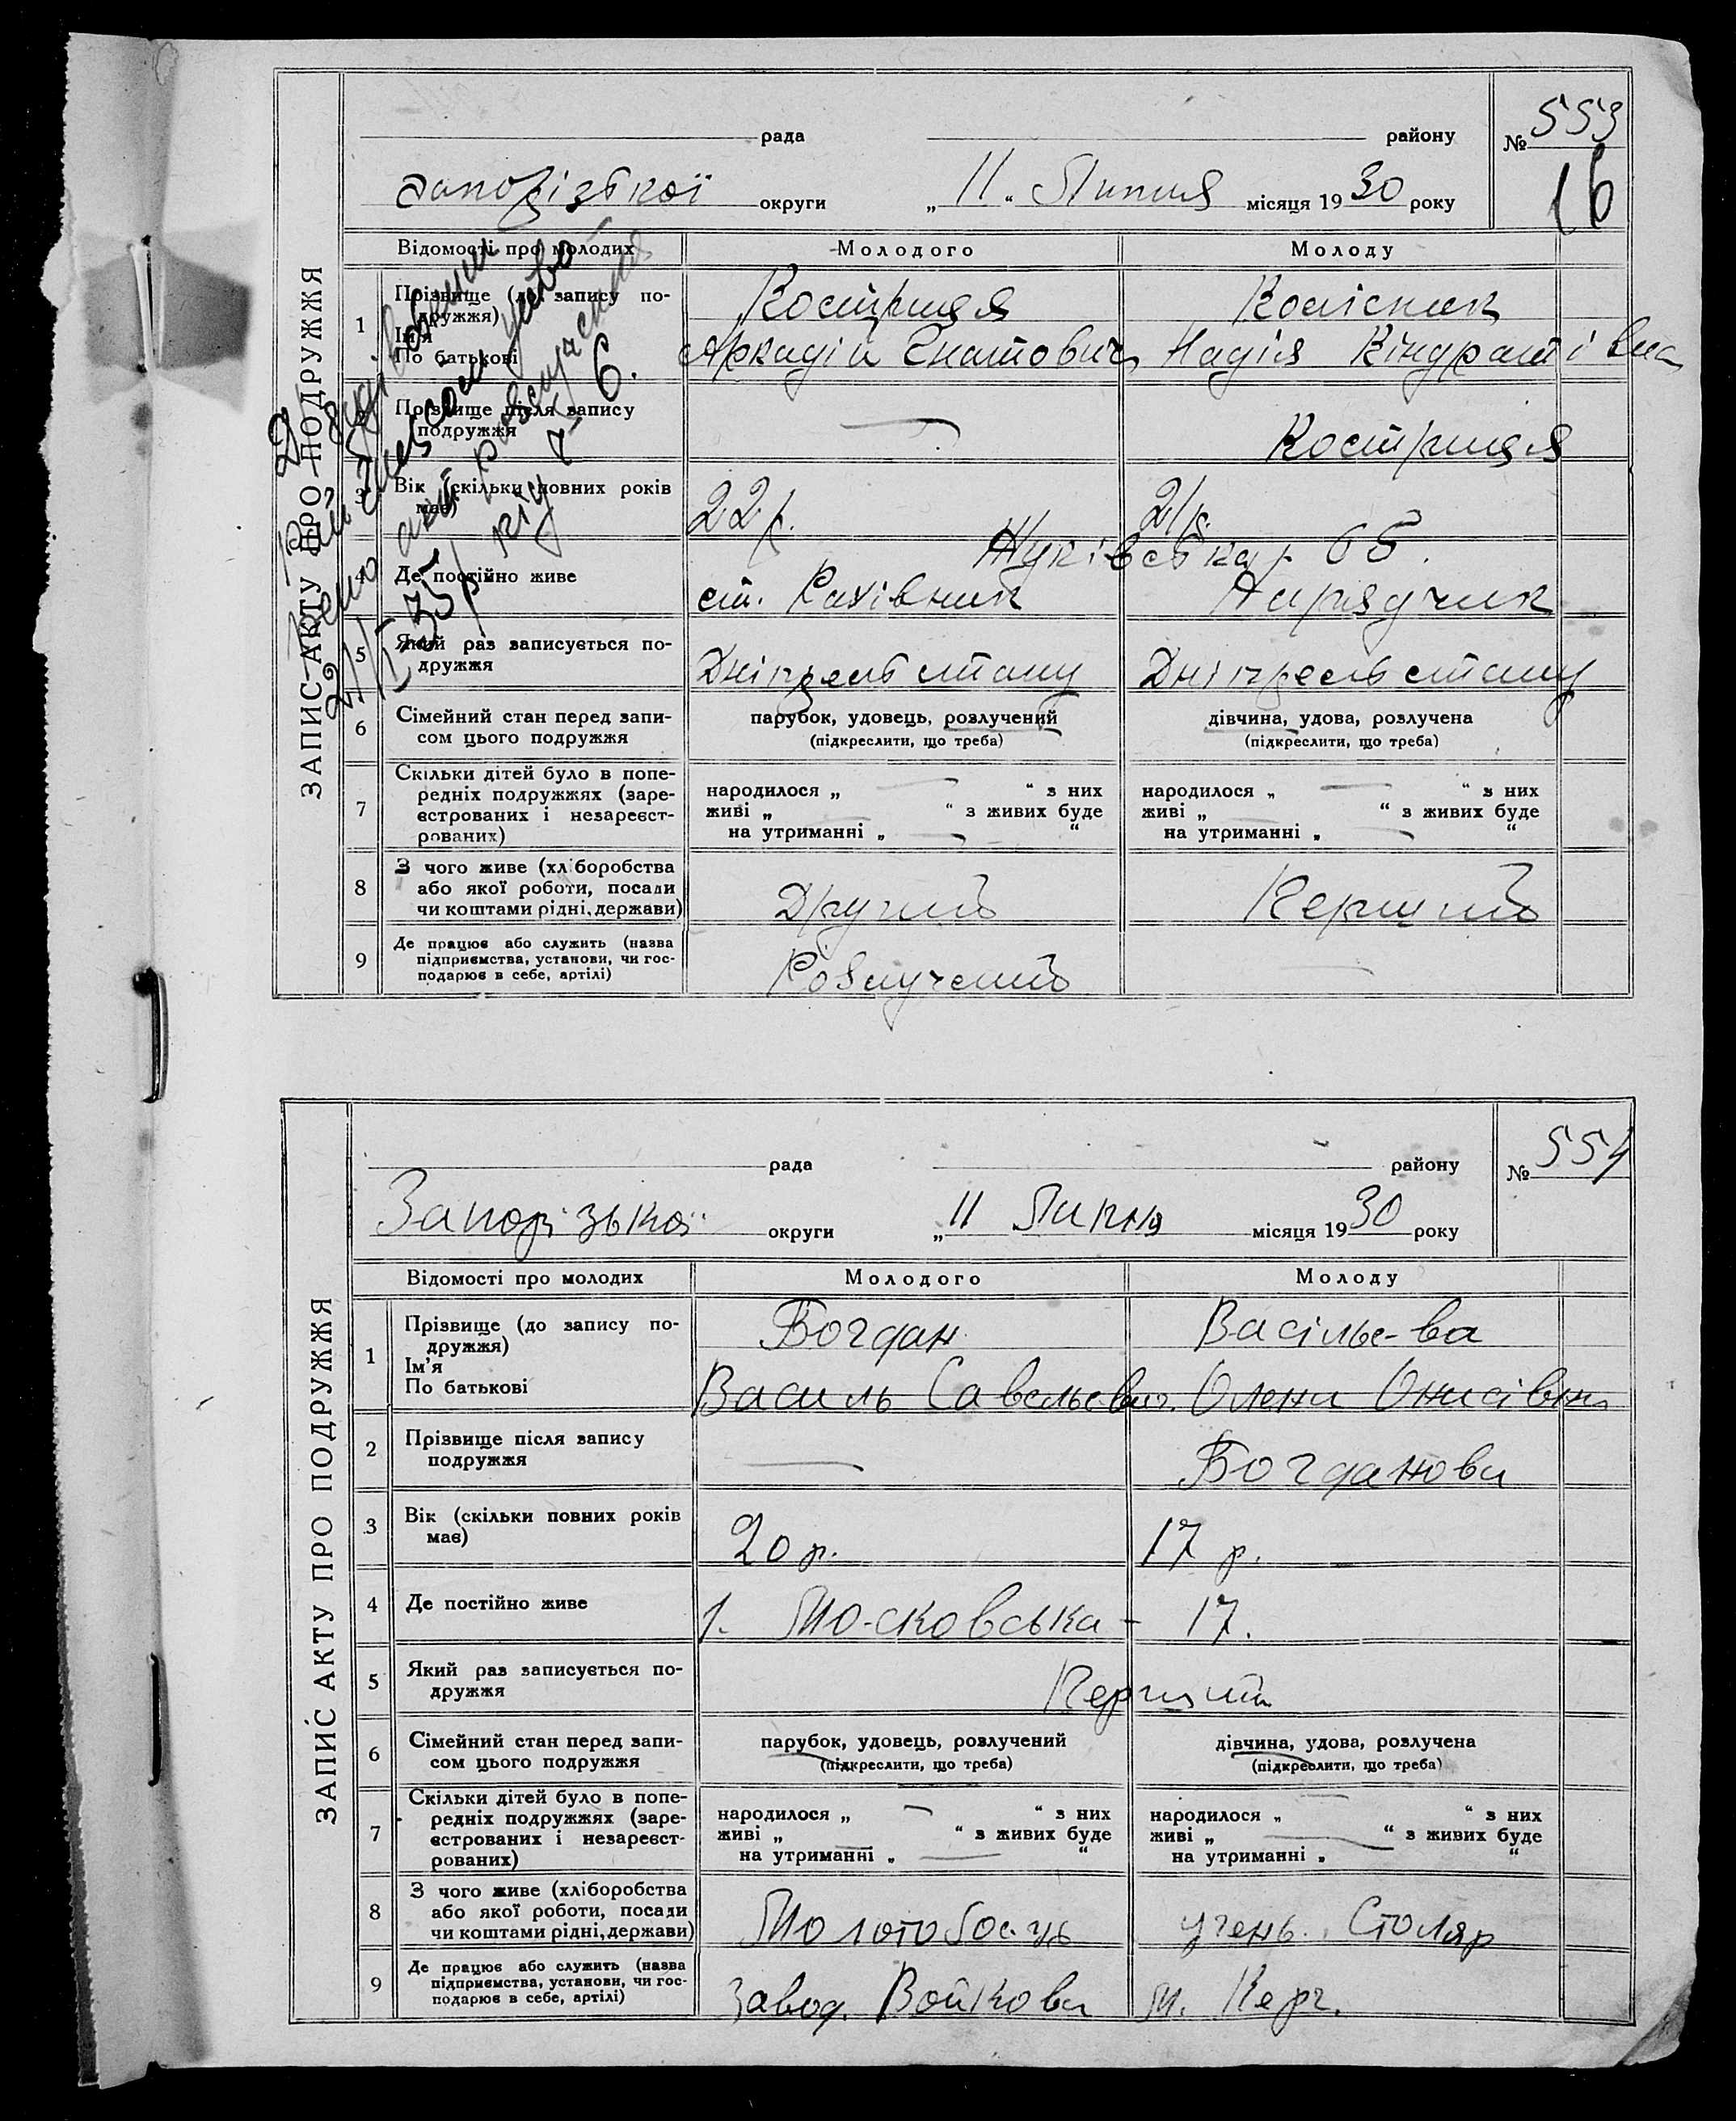 ЗАПИС АКТУ ПРО ПОДРУЖЖЯ
рада району № 553
16
Запорізької округи „11“ Липня місяця 1930 року
Відомості про молодих Молодого Молоду
1 Прізвище (до запису подружжя) Костриця Колісник
Ім'я
По батькові Аркадій Гнатович Надія Кіндратівна
Прізвище після запису подружжя — Костриця
3 Вік (скільки повних років має) 22 р. 21 р.
Жуківська, 65.
4 Де постійно живе ст. Рахівник Нарядчик
5 Який раз записується подружжя Дніпрельстану Дніпрельстану
6 Сімейний стан перед записом цього подружжя парубок, удовець, розлучений дівчина, удова, розлучена
(підкреслити, що треба) (підкреслити, що треба)
7 Скільки дітей було в попередніх подружжях (зареєстрованих і незареєстрованих)
народилося „ — “ з них народилося „ — “ з них
живі „ — “ з живих буде живі „ — “ з живих буде
на утриманні „ — “ на утриманні „ — “
8 З чого живе (хліборобства або якої роботи, посади чи коштами рідні, держави) Другий Перший
9 Де працює або служить (назва підприємства, установи, чи господарює в себе, артілі) Розлучений —
ЗАПИС АКТУ ПРО ПОДРУЖЖЯ
рада району № 554
Запорізької округи „11 Липня місяця 1930 року
Відомості про молодих Молодого Молоду
1 Прізвище (до запису подружжя) Богдан Васільє-ва
Ім'я
По батькові Василь Савельевич. Олена Онисівна
2 Прізвище після запису подружжя — Богданова
3 Вік (скільки повних років має) 20 р. 17 р.
4 Де постійно живе Московська - 17.
5 Який раз записується подружжя Перший
6 Сімейний стан перед записом цього подружжя парубок, удовець, розлучений дівчина, удова, розлучена
(підкреслити, що треба) (підкреслити, що треба)
7 Скільки дітей було в попередніх подружжях (зареєстрованих і незареєстрованих)
народилося „ — “ з них народилося „ — “ з них
живі „ — “ з живих буде живі „ — “ з живих буде
на утриманні „ — “ на утриманні „ “
8 З чого живе (хліборобства або якої роботи, посади чи коштами рідні, держави) Молотобоець учень. Столяр
9 Де працює або служить (назва підприємства, установи, чи господарює в себе, артілі) Завод. Войкова м. Керч.